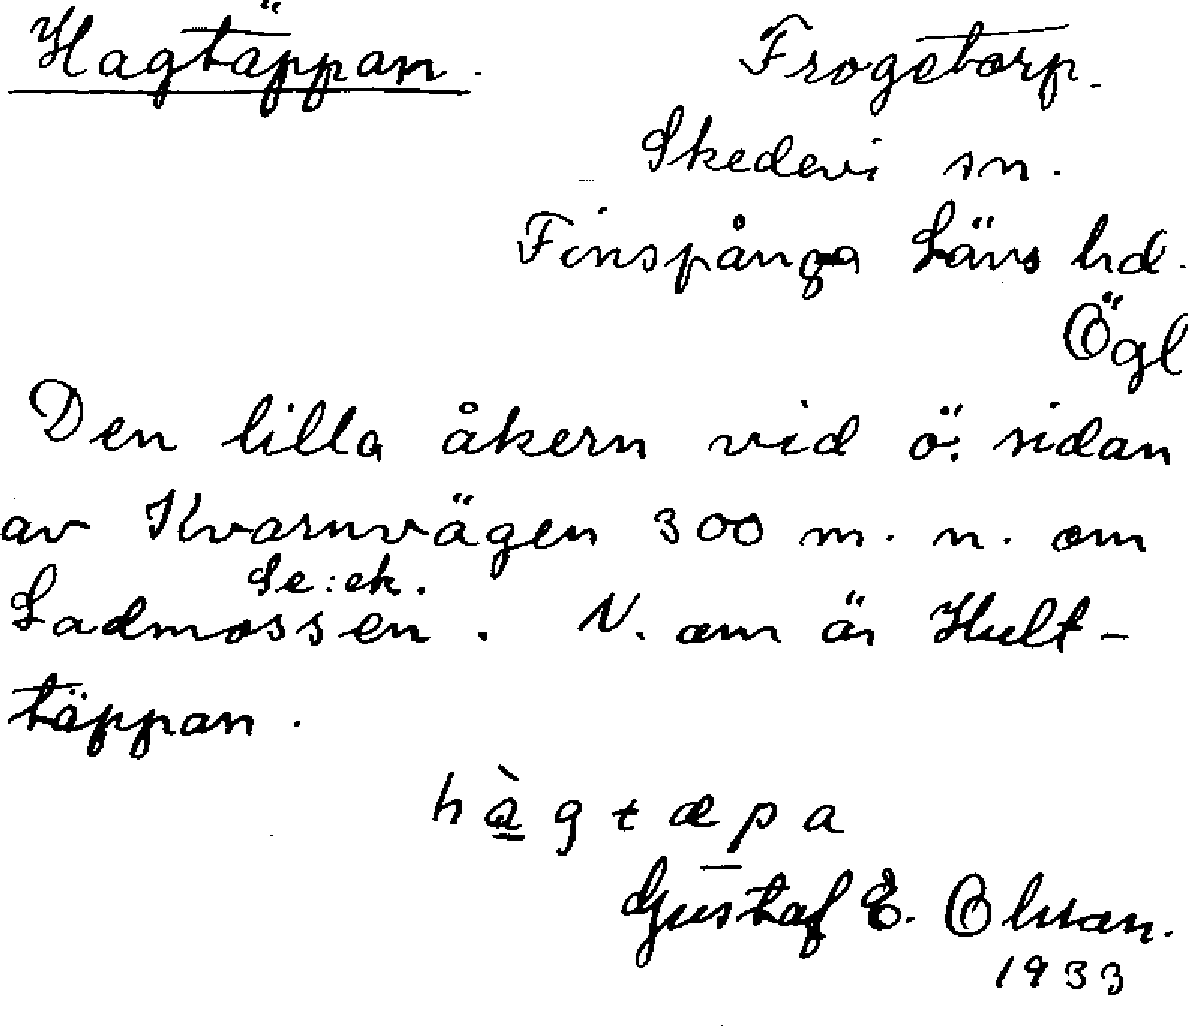 Hagtäppan.
Frogetorp.
Skedevi sn.
Finspånga Läns hd.
Ögl
Den lilla åkern vid ö. sidan
av Kvarnvägen 300 m. n. om
Se: ek.
Ladmossen. N. om är Hult-
täppan.
hàgtæpa
Gustaf E. Olsson.
1933